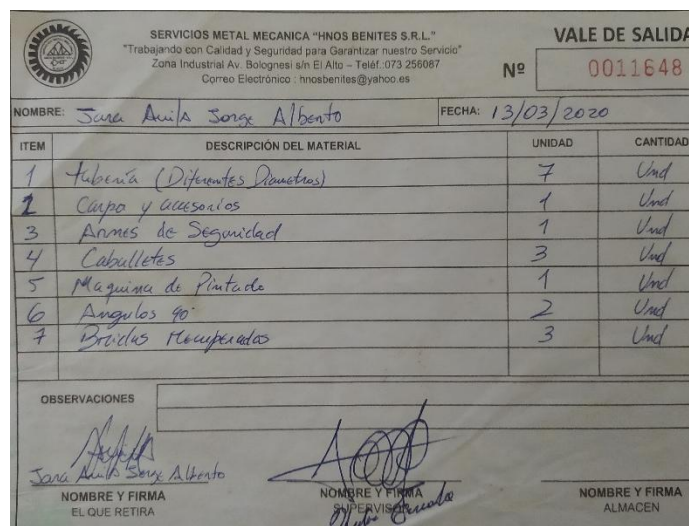 SERVICIOS METAL MECANICA "HNOS BENITES S.R.L."
"Trabajando con Calidad y Seguridad para Garantizar nuestro Servicio"
Zona Industrial Av. Bolognesi s/n El Alto – Teléf.:073 256087
Correo Electrónico : hnosbenites@yahoo.es
VALE DE SALIDA
Nº 0011648
NOMBRE: Jara Avila Jorge Alberto FECHA: 13/03/2020
ITEM DESCRIPCIÓN DEL MATERIAL UNIDAD CANTIDAD
1 tubería (Diferentes Diametros) 7 Und
2 Carpa y accesorios 1 Und
3 Arnes de Seguridad 1 Und
4 Caballetes 3 Und
5 Maquina de Pintado 1 Und
6 Angulos 90° 2 Und
7 Bridas Recuperados 3 Und
OBSERVACIONES
Jara Avila Jorge Alberto
NOMBRE Y FIRMA NOMBRE Y FIRMA NOMBRE Y FIRMA
EL QUE RETIRA SUPERVISOR ALMACEN